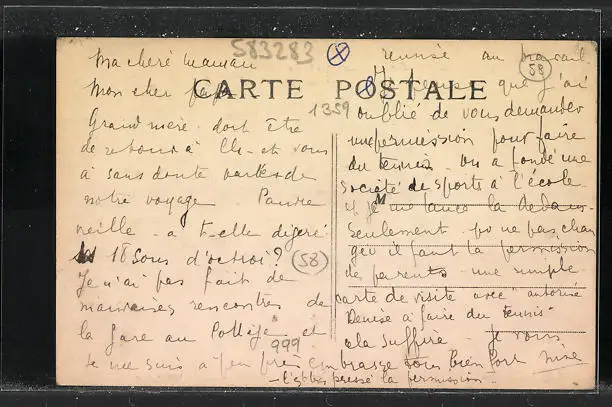 583283
CARTE POSTALE
1359
58
Ma chère maman
Mon cher papa
Grand'mère doit être
de retour à et vous
à sans doute parlé de
notre voyage. Pauvre
vieille a t-elle digéré
18 sous d'octroi? (58)
Je n'ai pas fait de
mauvaises rencontres de
la gare au et
999
je me suis à peu près
remise au travail.
Je pense que j'ai
oublié de vous demander
une permission pour faire
du tennis. On a fondé une
société de sports à l'école
et je me lance là dedans
Seulement pr ne pas chan
ger il faut la permission
de parents. une simple
carte de visite avec "autorise
Denise à faire du tennis"
cela suffira. Je vous
embrasse tous bien fort
c'est très pressé la permission.